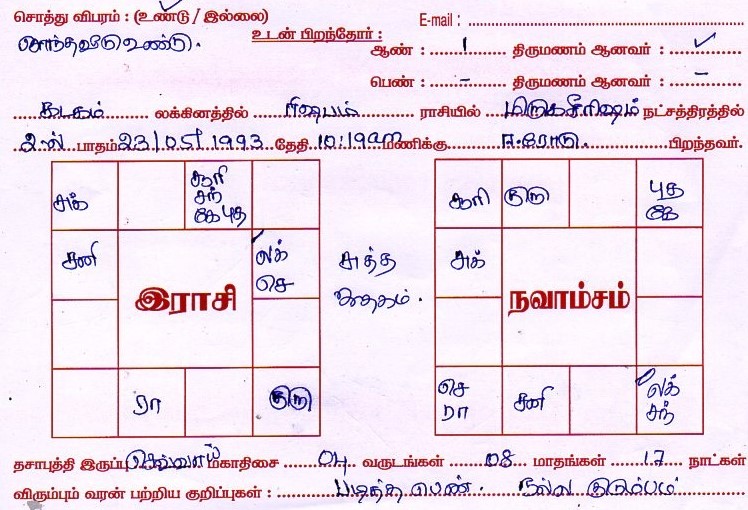 சொத்து விபரம் : (உண்டு / இல்லை)
E-mail :
சொந்தவீடு உண்டு.
உடன் பிறந்தோர் :
ஆண் : 1 திருமணம் ஆனவர் : ✓
பெண் : – திருமணம் ஆனவர் : –
கடகம் லக்கினத்தில் ரிஷபம் ராசியில் மிருகசீரிஷம் நட்சத்திரத்தில்
2ன் பாதம் 23/05/1993 தேதி 10:19am மணிக்கு ஈரோடு பிறந்தவர்.
சுக்
சூரி
சந்
கே புத
சூரி
குரு
புத
கே
சனி
லக்
செ
சுத்த
ஜாதகம்.
சுக்
இராசி
நவாம்சம்
ரா
குரு
செ
ரா
சனி
லக்
சந்
தசாபுத்தி இருப்பு செவ்வாய் மகாதிசை 04 வருடங்கள் 08 மாதங்கள் 17 நாட்கள்
விரும்பும் வரன் பற்றிய குறிப்புகள் : படித்த பெண். நல்ல குடும்பம்